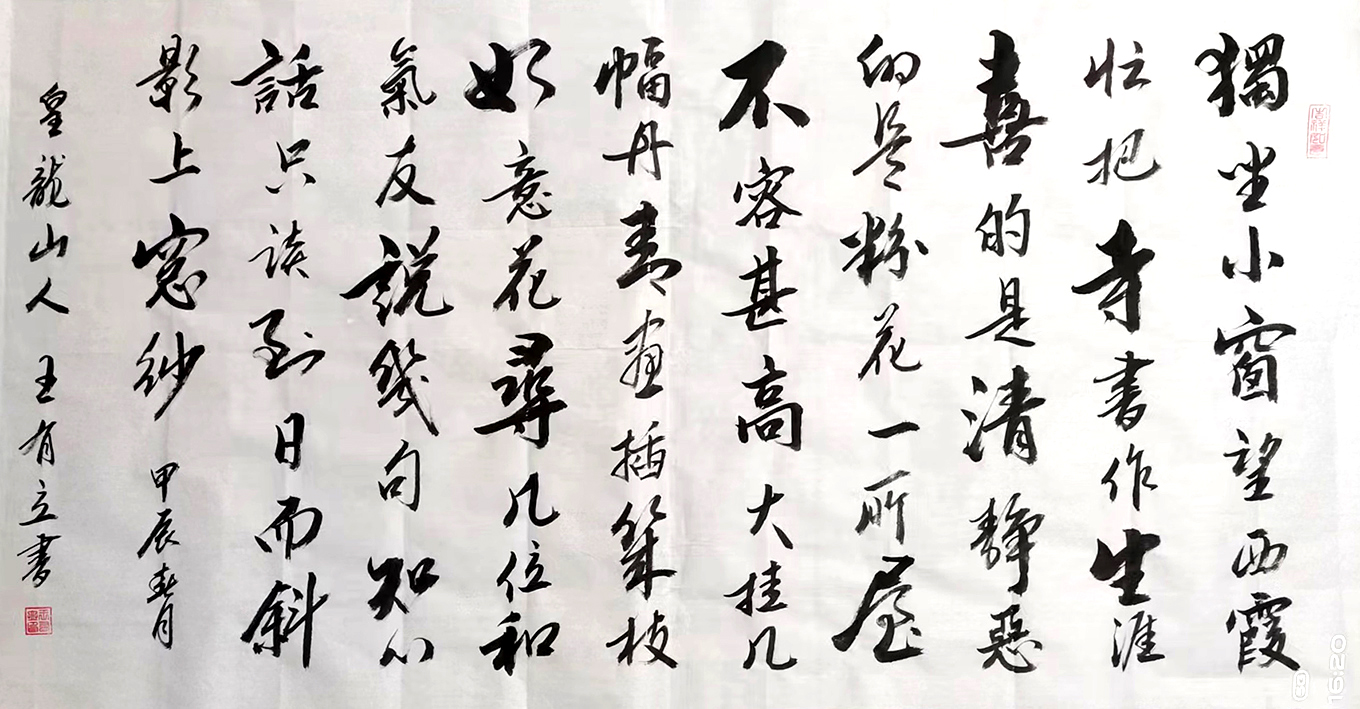 獨坐小窗望西霞
忙把寺書作生涯
喜的是清靜惡
的是粉花一所屋
不容甚高大挂几
幅丹青畫插几枝
如意花尋几位和
氣友説幾句知心
話只談到日而斜
影上窓紗 甲辰春月
皇龍山人 王有立書
16:20